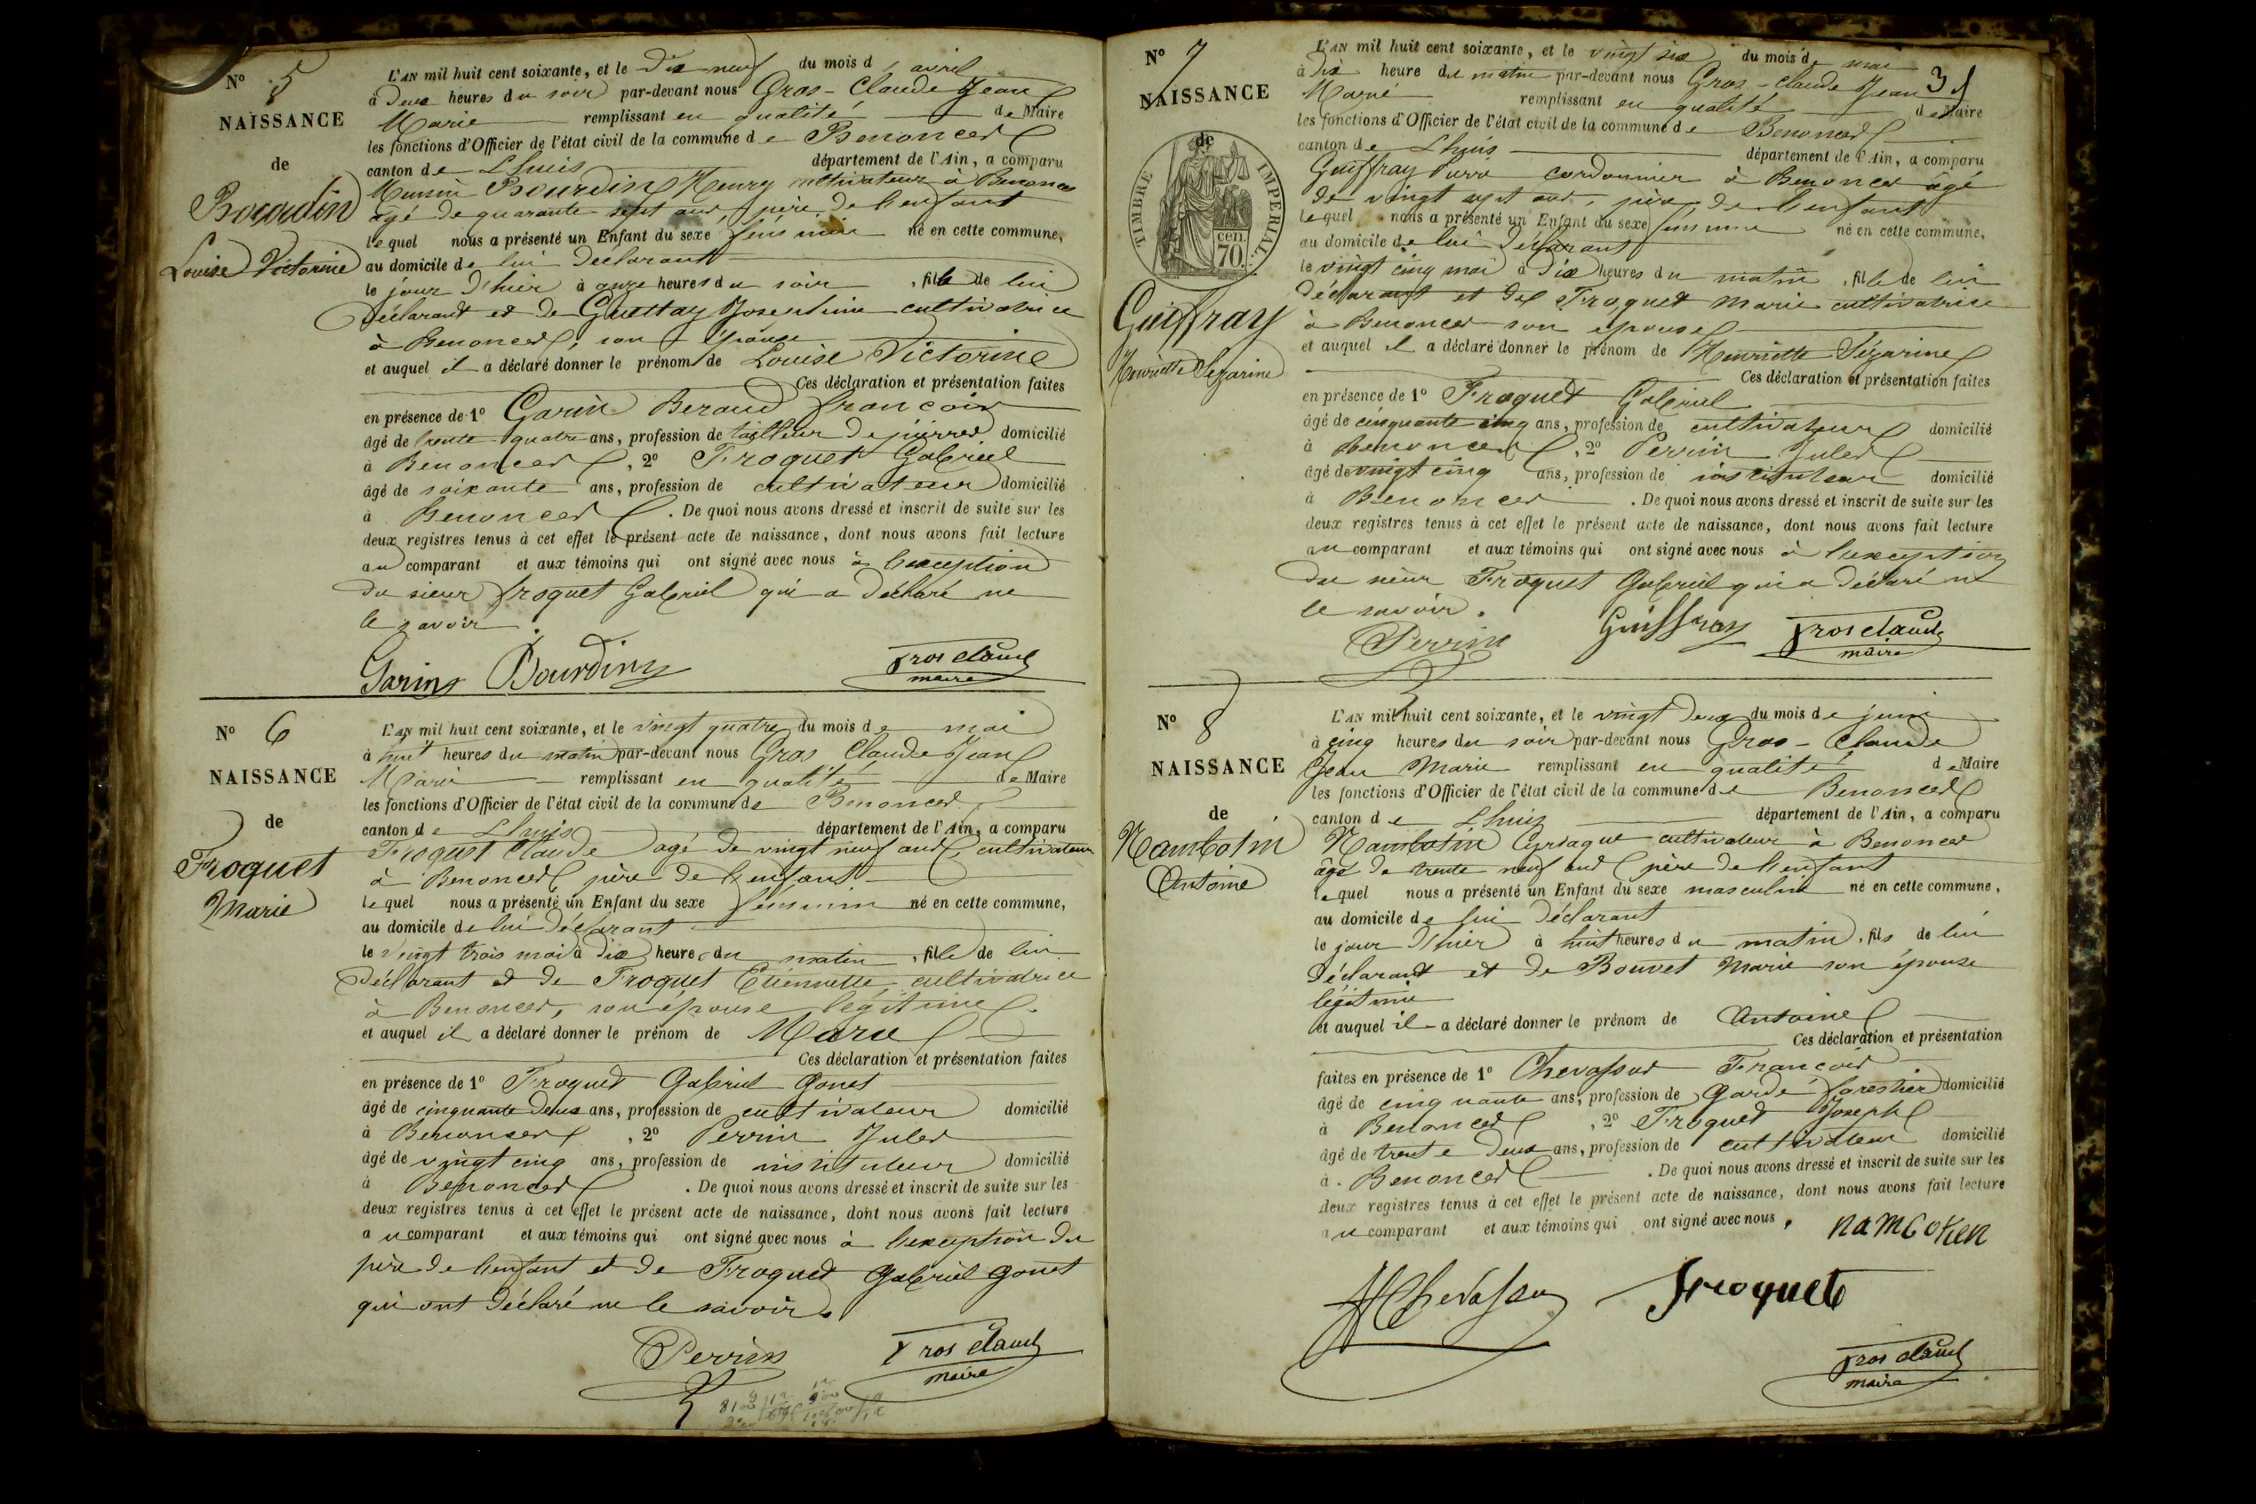 N° 5
NAISSANCE
de
Bourdin
Louise Victorine
L'AN mil huit cent soixante, et le dix neuf du mois d avril
à deux heures du soir par-devant nous Gros-Claude Jean
Marie remplissant en qualité de Maire
les fonctions d'Officier de l'état civil de la commune de Benonces
canton de Lhuis département de l'Ain, a comparu
Bourdin Henry cultivateur à Benonces
âgé de quarante sept ans, père de l'enfant
lequel nous a présenté un Enfant du sexe féminin né en cette commune,
au domicile de lui déclarant
le jour d'hier à onze heures du soir, fille de lui
déclarant et de Guettay Josephine cultivatrice
à Benonces, son épouse
et auquel il a déclaré donner le prénom de Louise Victorine
Ces déclaration et présentation faites
en présence de 1° Garin Beraud françois
âgé de trente quatre ans, profession de tailleur de pierres domicilié
à Benonces, 2° Froquet Gabriel
âgé de soixante ans, profession de cultivateur domicilié
à Benonces. De quoi nous avons dressé et inscrit de suite sur les
deux registres tenus à cet effet le présent acte de naissance, dont nous avons fait lecture
au comparant et aux témoins qui ont signé avec nous à l'exception
du sieur froquet Gabriel qui a déclaré ne
le savoir.
Garin Bourdin Gros Claude
maire
N° 6
NAISSANCE
de
Froquet
Marie
L'AN mil huit cent soixante, et le vingt quatre du mois de mai
à huit heures du matin par-devant nous Gros Claude Jean
Marie remplissant en qualité de Maire
les fonctions d'Officier de l'état civil de la commune de Benonces
canton de Lhuis département de l'Ain, a comparu
Froquet Claude agé de vingt neuf ans, cultivateur
à Benonces père de l'enfant
lequel nous a présenté un Enfant du sexe féminin né en cette commune,
au domicile de lui déclarant
le vingt trois mai à dix heures du matin, fille de lui
déclarant et de Froquet Etiennette, cultivatrice
à Benonces, son épouse légitime.
et auquel il a déclaré donner le prénom de Marie
Ces déclaration et présentation faites
en présence de 1° Froquet Gabriel Gonet
âgé de cinquante deux ans, profession de cultivateur domicilié
à Benonces, 2° Perrin Jules
âgé de vingt cinq ans, profession de instituteur domicilié
à Benonces. De quoi nous avons dressé et inscrit de suite sur les
deux registres tenus à cet effet le présent acte de naissance, dont nous avons fait lecture
au comparant et aux témoins qui ont signé avec nous à l'exception du
père de l'enfant et de Froquet Gabriel Gonet
qui ont déclaré ne le savoir.
Perrin Gros Claude
maire
N° 7
NAISSANCE
de
TIMBRE IMPERIAL
cen.
70.
Guiffray
Henriette Sezarine
31
L'AN mil huit cent soixante, et le vingt six du mois de mai
à dix heure du matin par-devant nous Gros-Claude Jean
Marie remplissant en qualité de Maire
les fonctions d'Officier de l'état civil de la commune de Benonces
canton de Lhuis département de l'Ain, a comparu
Guiffray cordonnier à Benonces âgé
de vingt sept ans, père de l'enfant
lequel nous a présenté un Enfant du sexe féminin né en cette commune,
au domicile de lui déclarant
le vingt cinq mai à dix heures du matin, fille de lui
déclarant et de Froquet Marie cultivatrice
à Benonces son épouse
et auquel il a déclaré donner le prénom de Henriette Sézarine
Ces déclaration et présentation faites
en présence de 1° Froquet Gabriel
âgé de cinquante cinq ans, profession de cultivateur domicilié
à Benonces, 2° Perrin Jules
âgé de vingt cinq ans, profession de instituteur domicilié
à Benonces. De quoi nous avons dressé et inscrit de suite sur les
deux registres tenus à cet effet le présent acte de naissance, dont nous avons fait lecture
au comparant et aux témoins qui ont signé avec nous à l'exception
du sieur Froquet Gabriel qui a déclaré ne
le savoir.
Perrin Guiffray Gros Claude
maire
N° 8
NAISSANCE
de
Nambotin
Antoine
L'AN mil huit cent soixante, et le vingt deux du mois de juin
à cinq heures du soir par-devant nous Gros-Claude
Jean Marie remplissant en qualité de Maire
les fonctions d'Officier de l'état civil de la commune de Benonces
canton de Lhuis département de l'Ain, a comparu
Nambotin Cyriaque cultivateur à Benonces
âgé de trente neuf ans père de l'enfant
lequel nous a présenté un Enfant du sexe masculin né en cette commune,
au domicile de lui déclarant
le jour d'hier à huit heures du matin, fils de lui
déclarant et de Bouvet Marie son épouse
légitime
et auquel il a déclaré donner le prénom de Antoine
Ces déclaration et présentation
faites en présence de 1° Chevassus François
âgé de cinquante ans, profession de Garde forestier domicilié
à Benonces, 2° Froquet Joseph
âgé de trente deux ans, profession de cultivateur domicilié
à Benonces. De quoi nous avons dressé et inscrit de suite sur les
deux registres tenus à cet effet le présent acte de naissance, dont nous avons fait lecture
au comparant et aux témoins qui ont signé avec nous,
Froquet
Gros Claude
maire